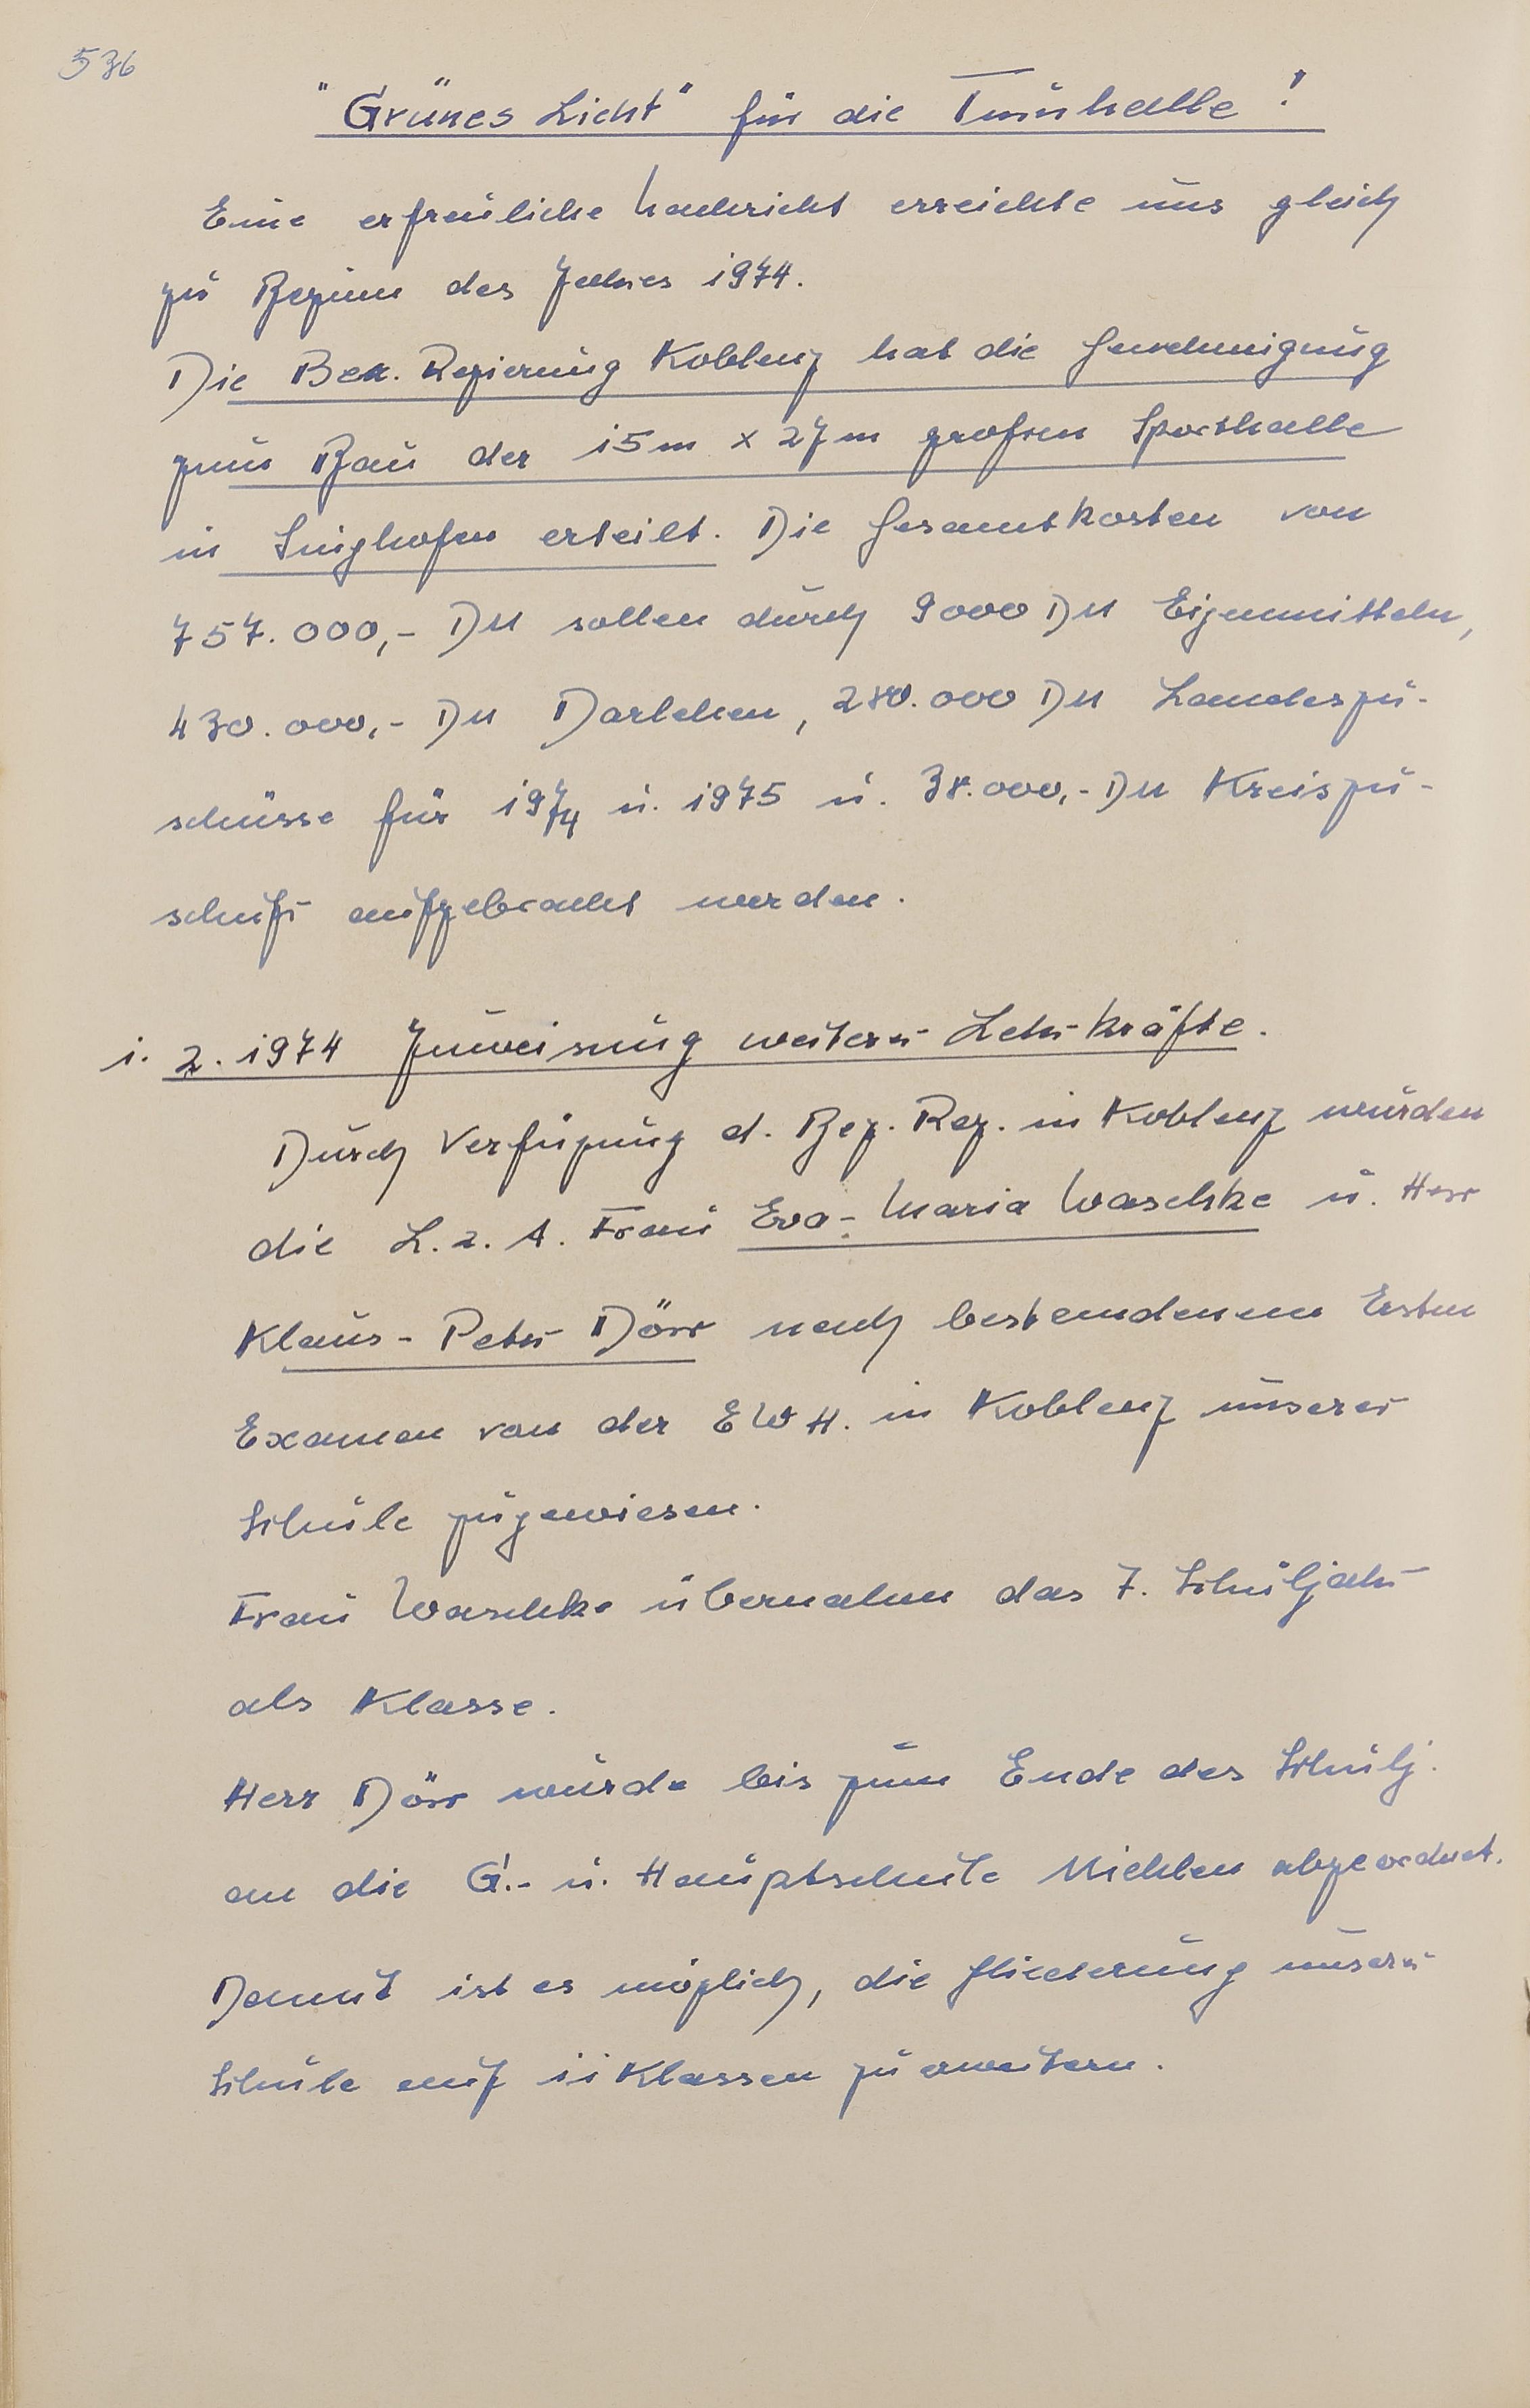 536
"Grünes Licht" für die Turnhalle!
Eine erfreuliche Nachricht erreichte uns gleich
zu Beginn des Jahres 1974.
Die Bez. Regierung Koblenz hat die Genehmigung
zum Bau der 15m x 27m großen Sporthalle
in Singhofen erteilt. Die Gesamtkosten von
757.000,- DM sollen durch 9000 DM Eigenmitteln,
430.000,- DM Darlehen, 280.000 DM Landeszu-
schüsse für 1974 u. 1975 u. 38.000,- DM Kreiszu-
schuß aufgebracht werden.
1. 2. 1974 Zuweisung weiterer Lehrkräfte.
Durch Verfügung d. Bez. Reg. in Koblenz wurden
die L. z. A. Frau Eva-Maria Waschke u. Herr
Klaus-Peter Dörr nach bestandenem Ersten
Examen von der EWH. in Koblenz unserer
Schule zugewiesen.
Frau Waschke übernahm das 7. Schuljahr
als Klasse.
Herr Dörr wurde bis zum Ende des Schulj.
an die G.- u. Hauptschule Miehlen abgeordnet.
Damit ist es möglich, die Gliederung unserer
Schule auf 11 Klassen zu erweitern.